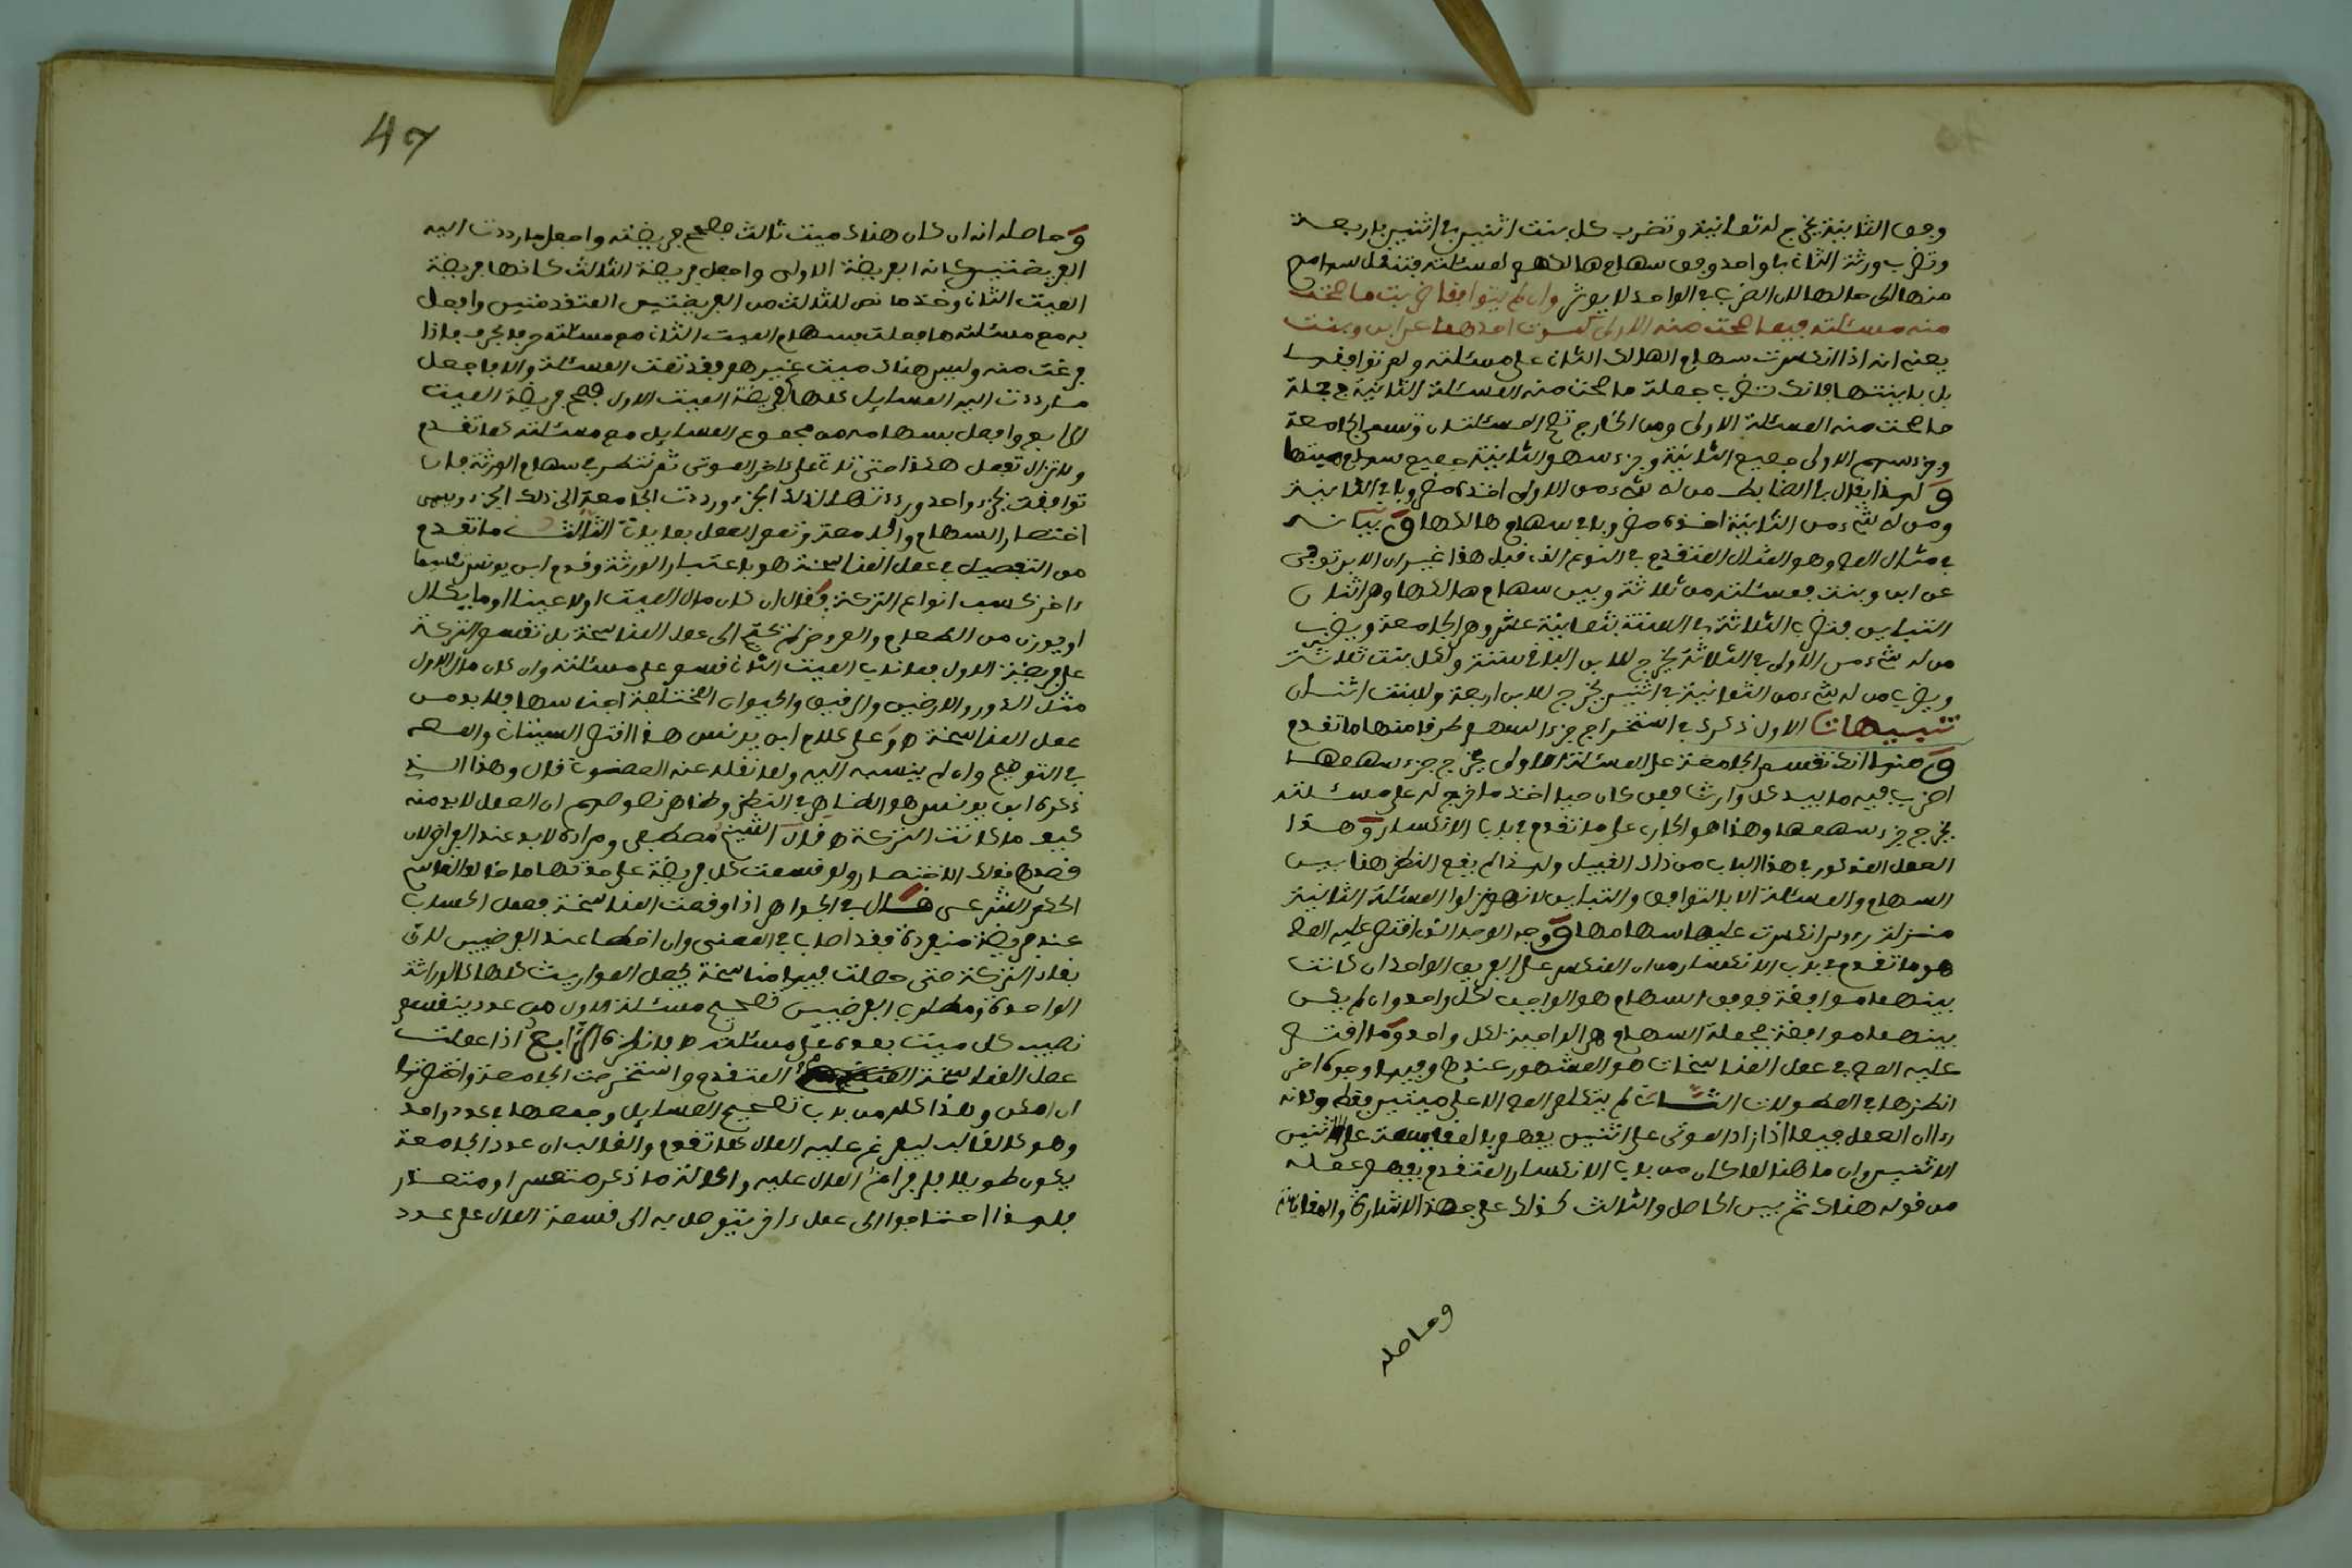 وفق الثانية يخرج له ثمانية وتضرب لكل بنت اثنين في اثنين باربعة
وتضرب ورثة الثاني با واحد وفق سهام هالكهم لمسئلته فتنتقل سهامهم
منها الى حالها لان الضرب في الواحد لا يوثر وان لم يتوافقا ضربت ما صحت
منه مسئلته فيما صحت منه الاولى كموت احدهما عن ابن وبنت
يعني انه اذا انكسرت سهام الهالك الثاني على مسئلته ولم توافقها
بل باينتها فانك تضرب جملة ما صحت منه المسئلة الثانية في جملة
ما صحت منه المسئلة الاولى ومن الخارج تصح المسئلتان وتسمى الجامعة
وجزء سهم الاولى جميع الثانية وجزء سهم الثانية جميع سهام ميتها
ولهذا يقال في الضابط من له شيء من الاولى اخذه مضروبا في الثانية
ومن له شيء من الثانية اخذه مضروبا في سهام هالكها وبيانه
في مثال المص وهو المثال المتقدم في النوع الذي قبل هذا غير ان الابن توفي
عن ابن وبنت فمسئلته من ثلاثة وبين سهام هالكها وهي اثنان
التباين فتضرب الثلاثة في الستة بثمانية عشر وهي الجامعة ويضرب
من له شيء من الاولى في الثلاثة يخرج للابن الباقي ستة ولكل بنت ثلاثة
ويضرب من له شيء من الثانية في اثنين يخرج للابن اربعة وللبنت اثنان
تنبيهات الاول ذكرى في استخراج جزء السهم طرقا منها ما تقدم
ومنها انك تقسم الجامعة على المسئلة الاولى يخرج جزء سهمها
اضرب فيه ما بيد كل وارث فمن كان حيا اخذ ما خرج له على مسئلته
يخرج جزء سهمها وهذا هو الجاري على ما تقدم في باب الانكسار وهذا
العمل المذكور في هذا الباب من ذلك القبيل ولهذا لم يقع النظر هنا بين
السهام والمسئلة الا بالتوافق والتباين لانهم نزلوا المسئلة الثانية
منزلة رءوس انكسرت عليها سهامها ووجه الوجه الذي اقتصر عليه المص
هو ما تقدم في باب الانكسار من ان المنكسر على الفريق الواحد ان كانت
بينهما موافقة فوفق السهام هو الواجب لكل واحد وان لم يكن
بينهما موافقة فجملة السهام هي الواجبة لكل واحد وما اقتصر
عليه المص في عمل المناسخات هو المشهور عندهم وفيها وجوه اخر
انظرها في المطولات الثاني لم يتكلم المص الا على ميتين فقط ولانه
راى ان العمل فيما اذا زاد الموتى على اثنين يفهم بالمقايسة على الاثنين
الاثنين وان ما هنا لما كان من باب الانكسار المتقدم يفهم عمله
من قوله هناك ثم بين الحاصل والثالث كذلك على هذه الاشارة والمقايسة
وحاصله
47
وحاصله انه ان كان هناك ميت ثالث فصحح فريضته واجعل ما رددت اليه
الفريضتين كانه الفريضة الاولى واجعل فريضة الثالث كانها فريضة
الميت الثاني وخذ ما نص للثالث من الفريضتين المتقدمتين وافعل
به مع مسئلته ما فعلت بسهام الميت الثاني مع مسئلته حرفا بحرف فاذا
فرغت منه وليس هناك ميت غير هو فقد تمت المسئلة والا فاجعل
ما رددت اليه المسايل كلها فريضة الميت الاول فصحح فريضة الميت
الرابع وافعل بسهامه من مجموع المسايل مع مسئلته كما تقدم
ولا تزال تعمل هكذا حتى تاتي على ءاخر الموتى ثم تنظر في سهام الورثة فان
توافقت بجزء واحد ورددتها لذلك الجزء ورددت الجامعة الى ذلك الجزء ويسمى
اختصار السهام والجامعة وتمم العمل بما ياتي الثالث ما تقدم
من التفصيل في عمل المناسخة هو باعتبار الورثة وقدم ابن يونس تقسيما
ءاخر بحسب انواع التركة فقال ان كان مال الميت الاول عينا او ما يكال
او يوزن من الطعام والعروض لم يحتج الى عمل المناسخة بل تقسم التركة
على فريضة الاول فما ناب الميت الثاني قسم على مسئلته وان كان مال الاول
مثل الدور والارضين والرقيق والحيوان المختلفة اجناسها فلا بد من
عمل المناسخة ه وعلى كلام ابن يونس هذا اقتصر السيتاني والمص
في التوضيح وان لم ينسبه اليه ولما نقله عنه العصنوني قال وهذا الذي
ذكره ابن يونس هو الظاهر في النظر وظاهر نصوصهم ان العمل لا بد منه
كيف ما كانت التركة ه قال الشيخ مصطفى ومراده لا بد عند الفراض لان
قصدهم ذلك الاختصار ولو قسمت كل فريضة على حدتها ما خالف القاسم
الحكم الشرعي قال في الجواهر اذا وقعت المناسخة فعمل الحساب
عند فريضة منفردة فقد اصاب في المعنى وان اخطا عند الفرضيين لان
بقاء التركة حتى حصلت فيها مناسخة يجعل المواريث كلها كالوراثة
الواحدة ومطلوب الفرضيين تصحيح مسئلة الاول من عدد ينقسم
نصيب كل ميت بعده على مسئلته ه فانظره الرابع اذا عملت
عمل المناسخة المتقدم واستخرجت الجامعة واختصرتها
ان امكن وهذا كله من باب تصحيح المسايل وجمعها في عدد واحد
وهو كالقالب ليفرغ عليه المال كما تقدم والغالب ان عدد الجامعة
يكون طويلا فافراغ المال عليه والحالة ما ذكر متعسر او متعذر
فلهذا احتاجوا الى عمل ءاخر يتوصل به الى قسمة المال على عدد